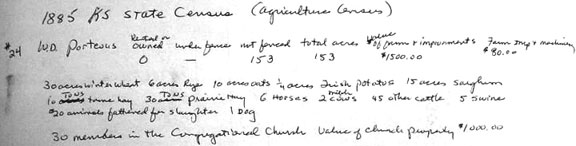 1885 KS State Census (Agriculture Census)
#24 W.D. Porteous Rented or owned under fence not fenced total acres Value of farm & improvments Farm Imp & machinery
0 — 153 153 $1500.00 $80.00
30 acres winter wheat 6 acres Rye 10 acres oats ¼ acre Irish potatos 15 acres sorghum
10 TONS tame hay 30 TONS Prairie Hay 6 Horses 2 milch cows 45 other cattle 5 swine
$20 animals fattened for slaughter 1 Dog
30 members in the Congregational Church Value of church property $1000.00